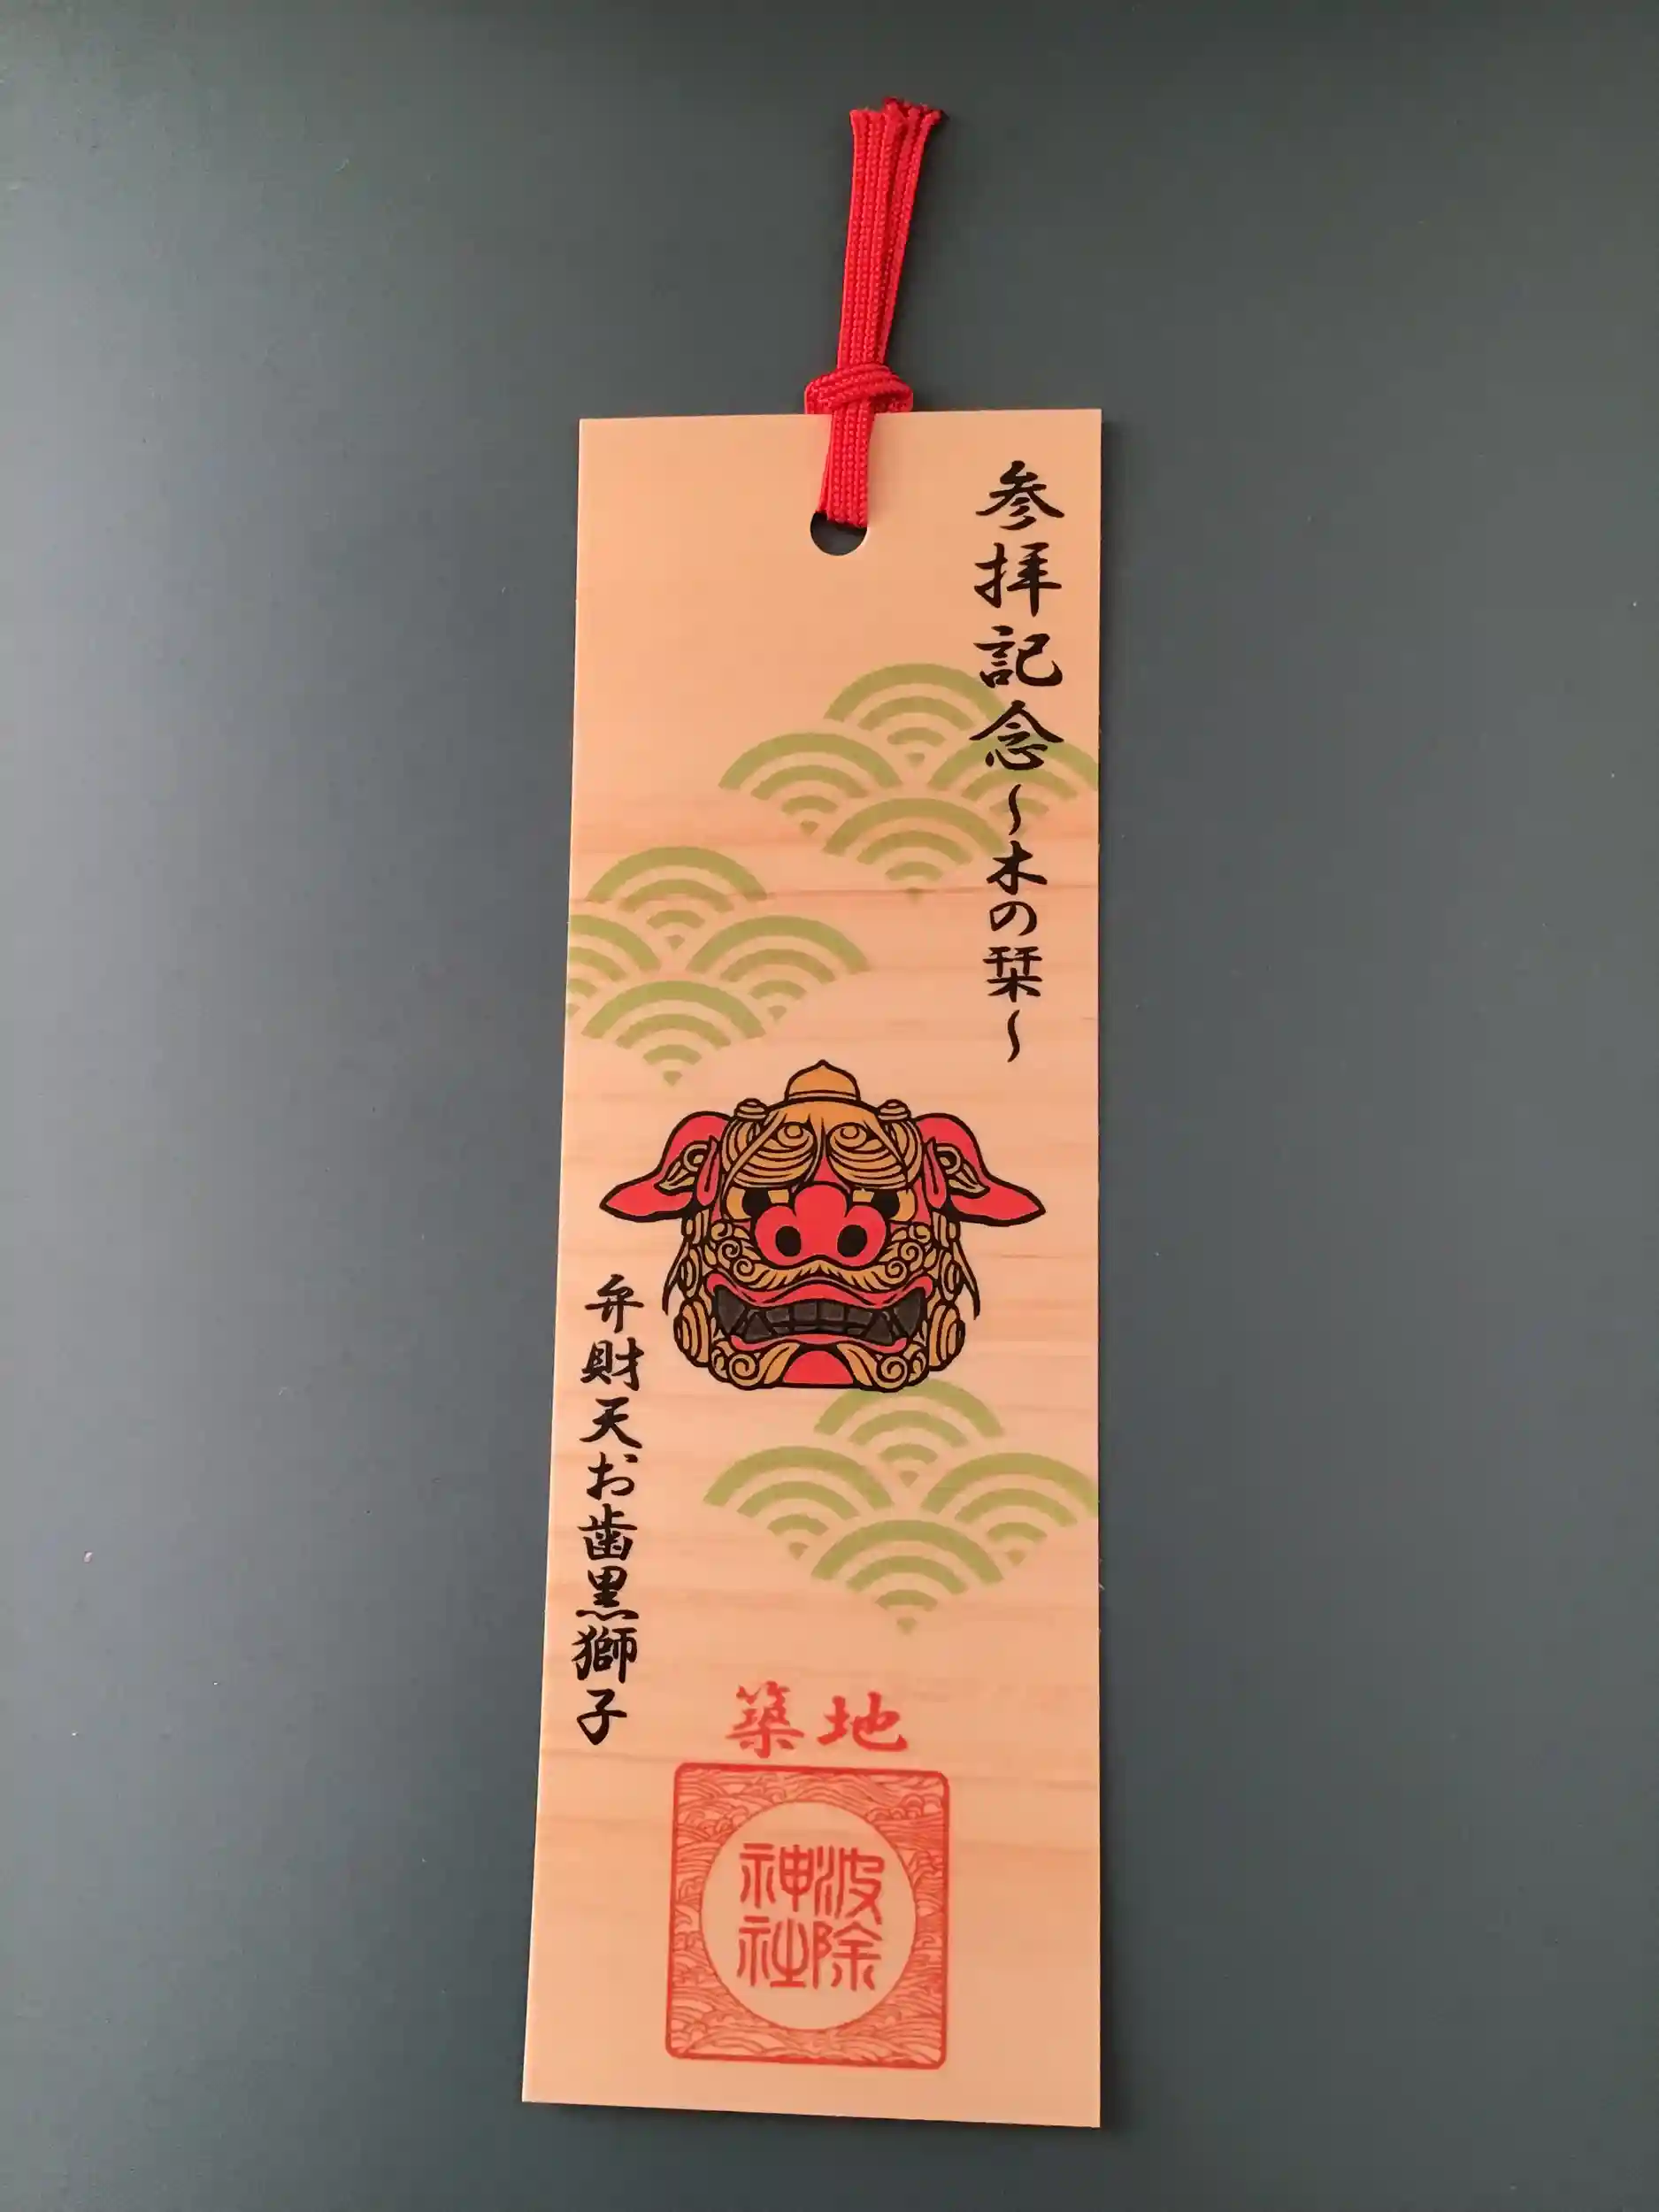 参拝記念～木の栞～
弁財天お歯黒獅子
築地
波除
神社